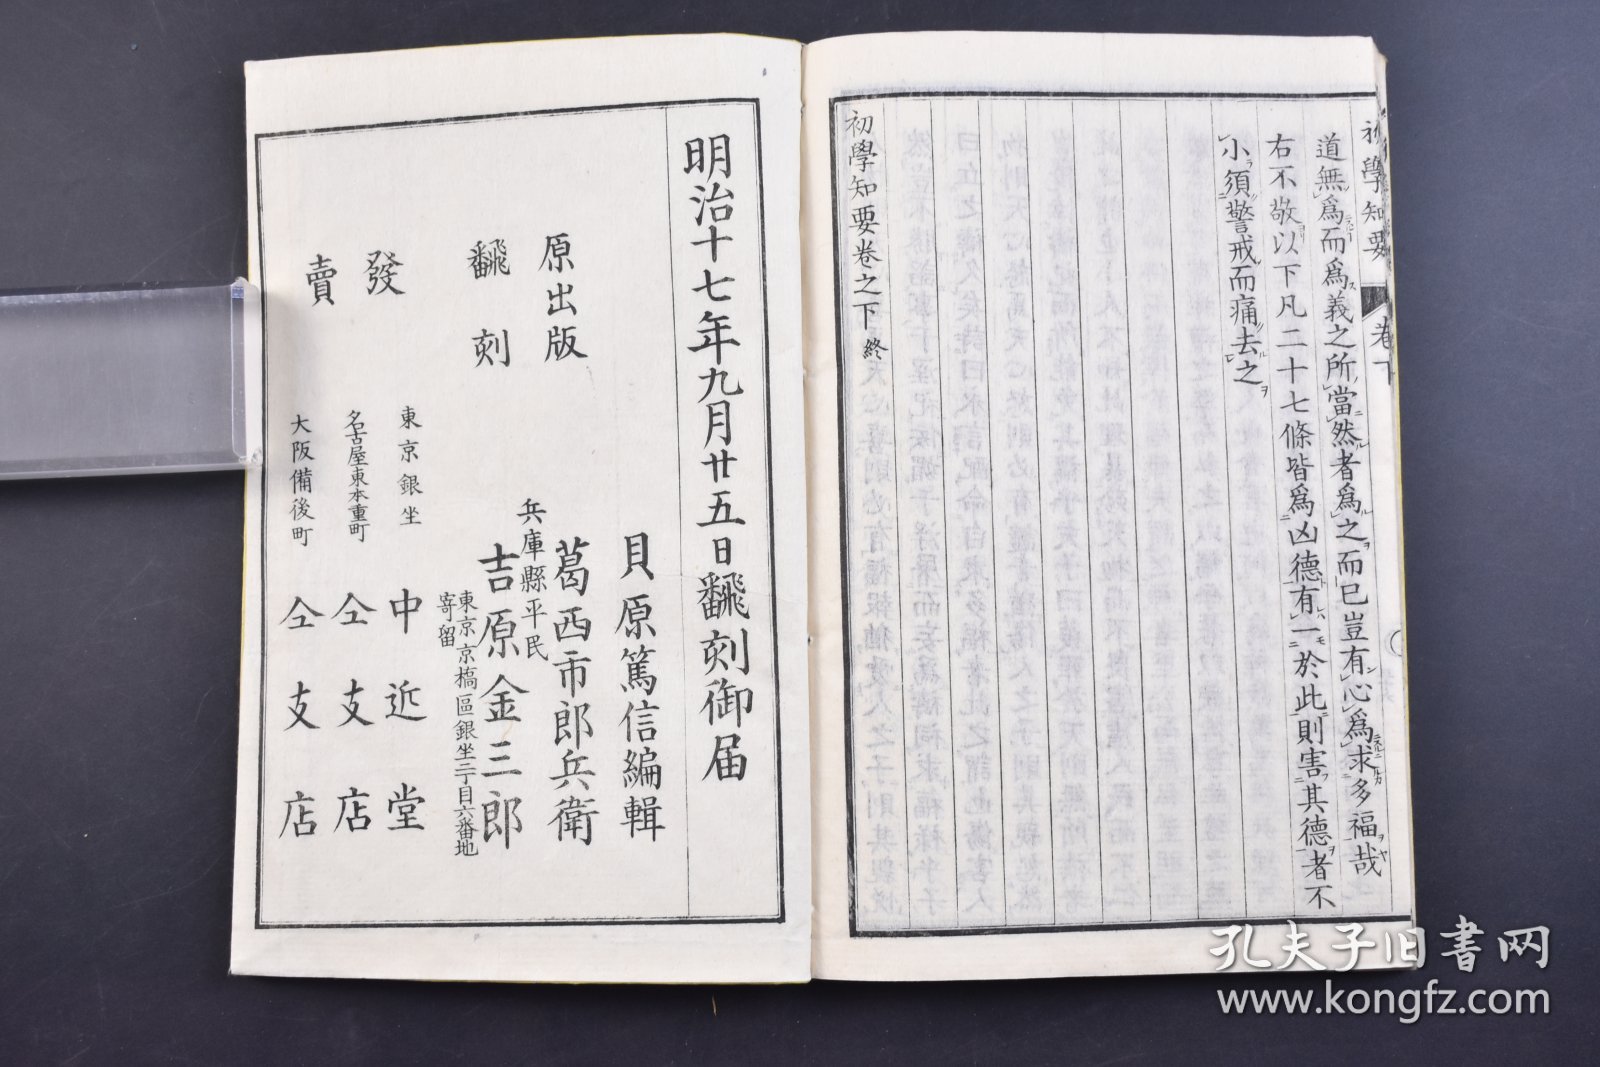 初學知要 卷下
道無爲而爲義之所當然者爲之而已豈有心爲求多福哉
右不敬以下凡二十七條皆爲凶德有一於此則害其德者不
小須警戒而痛去之
初學知要卷之下 終
明治十七年九月廿五日翻刻御届
貝原篤信編輯
原出版 葛西市郎兵衛
兵庫縣平民
翻刻 吉原金三郎
東京京橋區銀坐二丁目六番地
寄留
發賣
東京銀坐 中近堂
名古屋東本重町 仝支店
大阪備後町 仝支店
孔夫子旧书网
www.kongfz.com